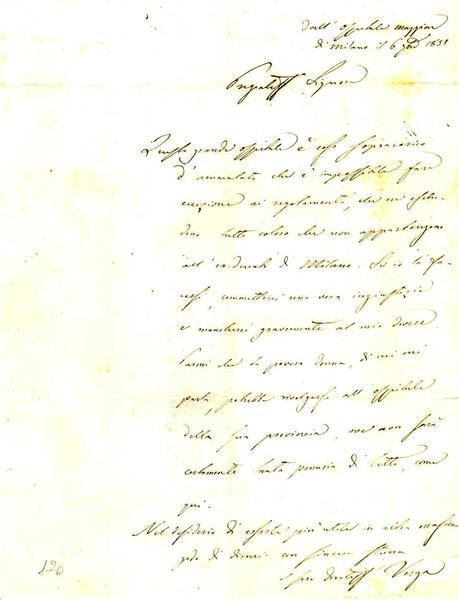 Dall' Ospitale maggiore
di Milano il 6 1851
Pregiatiss. Signora
Questo grande ospitale è così sopracarico
d'ammalati, che è impossibile fare
eccezione ai regolamenti, che ne esclu-
dono tutti coloro che non appartengono
all' ex-ducato di Milano. Se io la fa-
cessi, commetterei una vera ingiustizia
e mancherei gravemente al mio dovere.
Parmi che la povera donna, di cui mi
parla, potrebbe rivolgersi all' ospitale
della sua provincia, ove non sarà
certamente tanta penuria di letti, come
qui.
Nel desiderio di esserle più utile in altra occasione
godo di dirmi con sincera stima
Verga
120